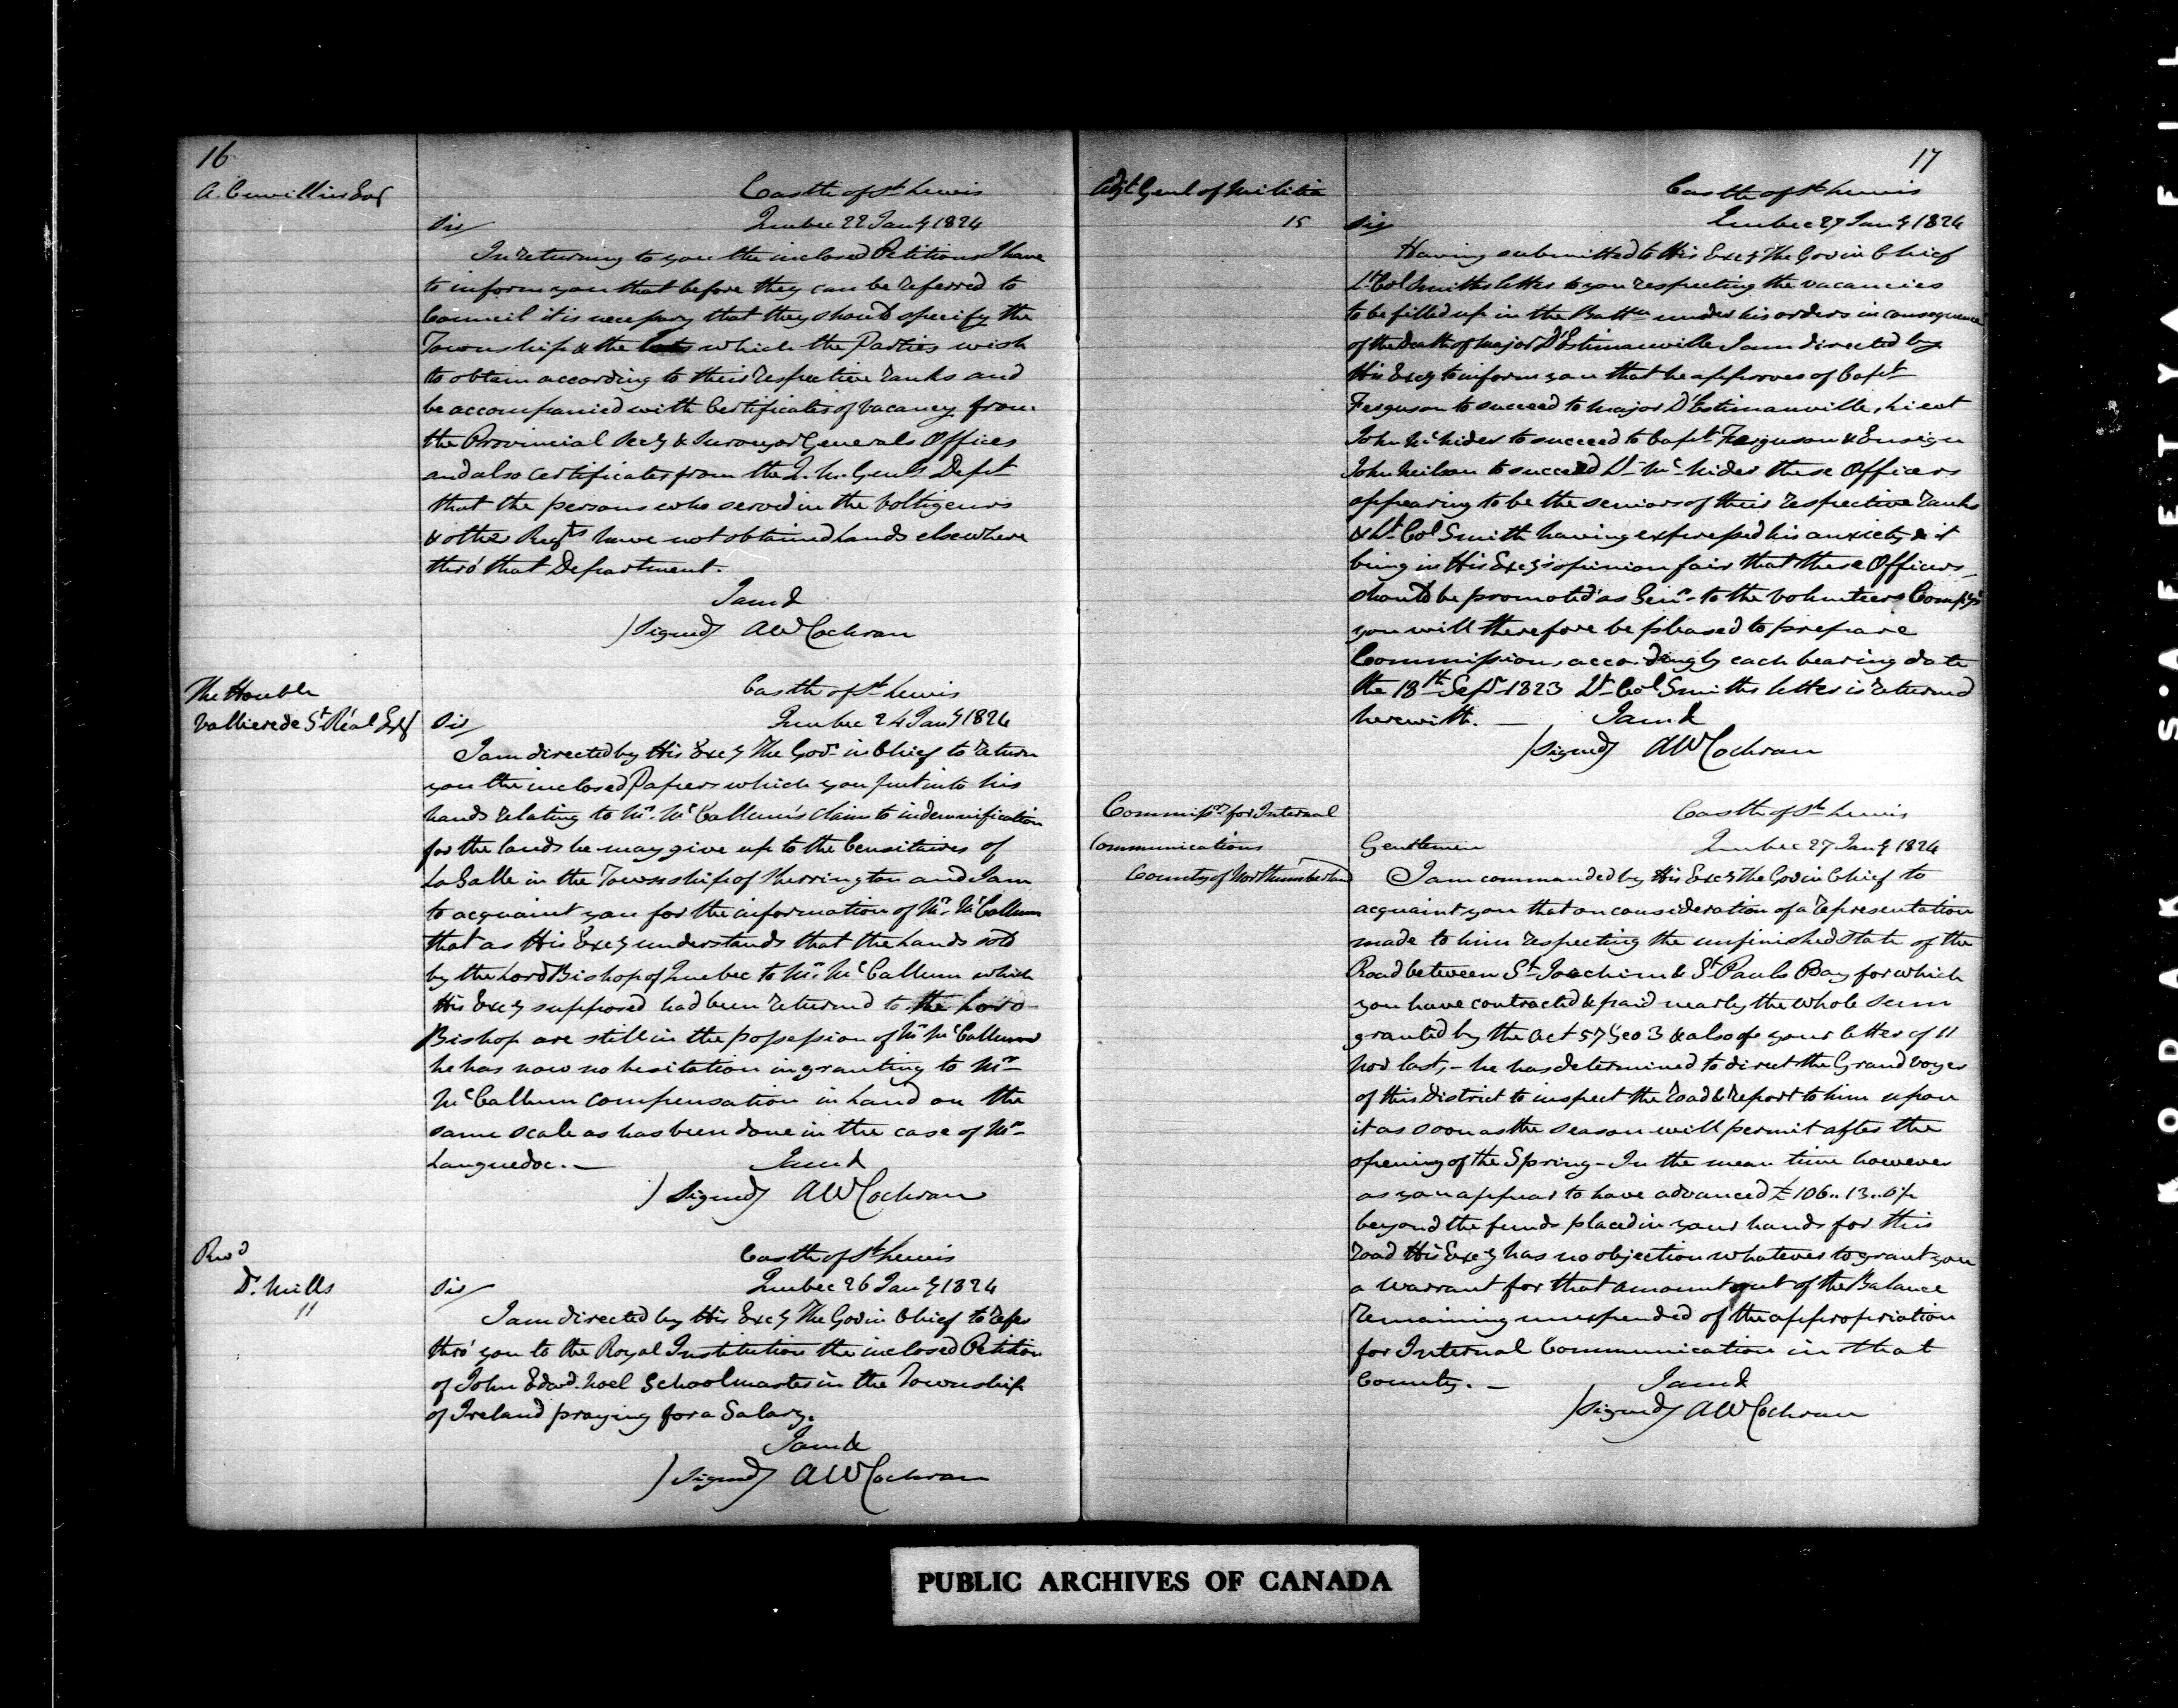 16
A. Cuvillier Esqr
Castle of St Lewis
Sir/ Quebec 22 Jany 1824
In returning to you the inclosed Petitions I have
to inform you that before they can be referred to
Council it is necessary that they should specify the
Township & the lots which the Parties wish
to obtain according to their respective ranks and
be accompanied with Certificates of vacancy from
the Provincial Secy & Surveyor Generals Offices
and also certificates from the Q. M. Genls Dept
that the persons who served in the Voltigeurs
& other Regts have not obtained lands elsewhere
thro' that Department.
I am &
/Signed/ AW Cochran
The Honble
Vallieres de St Réal Esqr
Castle of St Lewis
Sir/ Quebec 24 Jany 1824
I am directed by His Excy The Govr in Chief to return
you the inclosed Papers which you put into his
hands relating to Mr. McCallum's claim to indemnification
for the lands he may give up to the Censitaires of
LaSalle in the Township of Sherrington and I am
to acquaint you for the information of Mr. McCallum
that as His Excy understands that the lands sold
by the Lord Bishop of Quebec to Mr. McCallum which
His Excy supposed had been returned to the Lord
Bishop are still in the possession of Mr McCallum
he has now no hesitation in granting to Mr
McCallum compensation in land on the
same scale as has been done in the case of Mr
Languedoc. —
I am &
/Signed/ AW Cochran
Revd
Dr. Mills
11
Castle of St Lewis
Sir/ Quebec 26 Jany 1824
I am directed by His Excy The Gov in Chief to refer
thro' you to the Royal Institution the inclosed Petition
of John Edwd. Noel Schoolmaster in the Township
of Ireland praying for a Salary.
I am &
/Signed/ AW Cochran
17
Adjt Genl of Militia
15
Castle of St Lewis
Sir/ Quebec 27 Jany 1824
Having submitted to His Excy The Gov in Chief
Lt Col Smiths letter to you respecting the vacancies
to be filled up in the Battn under his orders in consequence
of the death of Major D'Estimauville I am directed by
His Excy to inform you that he approves of Capt
Ferguson to succeed to Major D'Estimauville, Lieut
John McNider to succeed to Capt Ferguson & Ensign
John Neilson to succeed Lt McNider these Officers
appearing to be the seniors of their respective ranks
& Lt Col Smith having expressed his anxiety & it
being in His Excy's opinion fair that these Officers
should be promoted as Senr to the Volunteers Compys
you will therefore be pleased to prepare
Commissions accordingly each bearing date
the 18th Sepr 1823 Lt Col Smiths letter is returned
herewith. — I am &
/Signed/ AW Cochran
Commissrs for Internal
Communications
County of Northumberland
Castle of St Lewis
Gentlemen Quebec 27 Jany 1824
I am commanded by His Excy The Gov in Chief to
acquaint you that on consideration of a representation
made to him respecting the unfinished state of the
Road between St Joachim & St Pauls Bay for which
you have contracted & paid nearly the whole sum
granted by the Act 57 Geo 3 & also of your letter of 11
Nov last, – he has determined to direct the Grand voyer
of this District to inspect the road & report to him upon
it as soon as the season will permit after the
opening of the Spring – In the mean time however
as you appear to have advanced £106..13..
beyond the funds placed in your hands for this
road His Excy has no objection whatever to grant you
a warrant for that amount out of the Balance
remaining unexpended of the appropriation
for Internal Communication in that
County. — I am &
/Signed/ AW Cochran
PUBLIC ARCHIVES OF CANADA
KODAK S·A·F·E·T·Y FIL